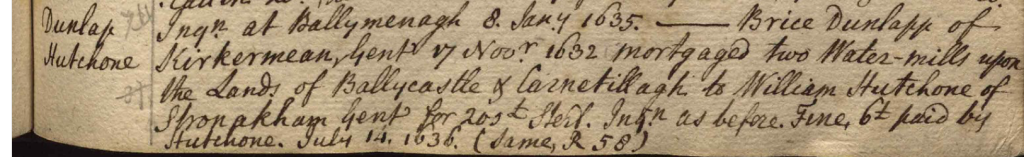 Dunlap Inqn at Ballymenagh 8. Jany 1635. — Brice Dunlapp of
Hutchone Kirkermean, Gentr 17 Novr 1632 mortgaged two Water-mills upon
the Lands of Ballycastle & Carnetillagh to William Hutchone of
Stronakham Gent for 205£ Sterl. Inqn as before. Fine, 6£ paid by
Hutchone. July 14. 1636. (Same, R 58)